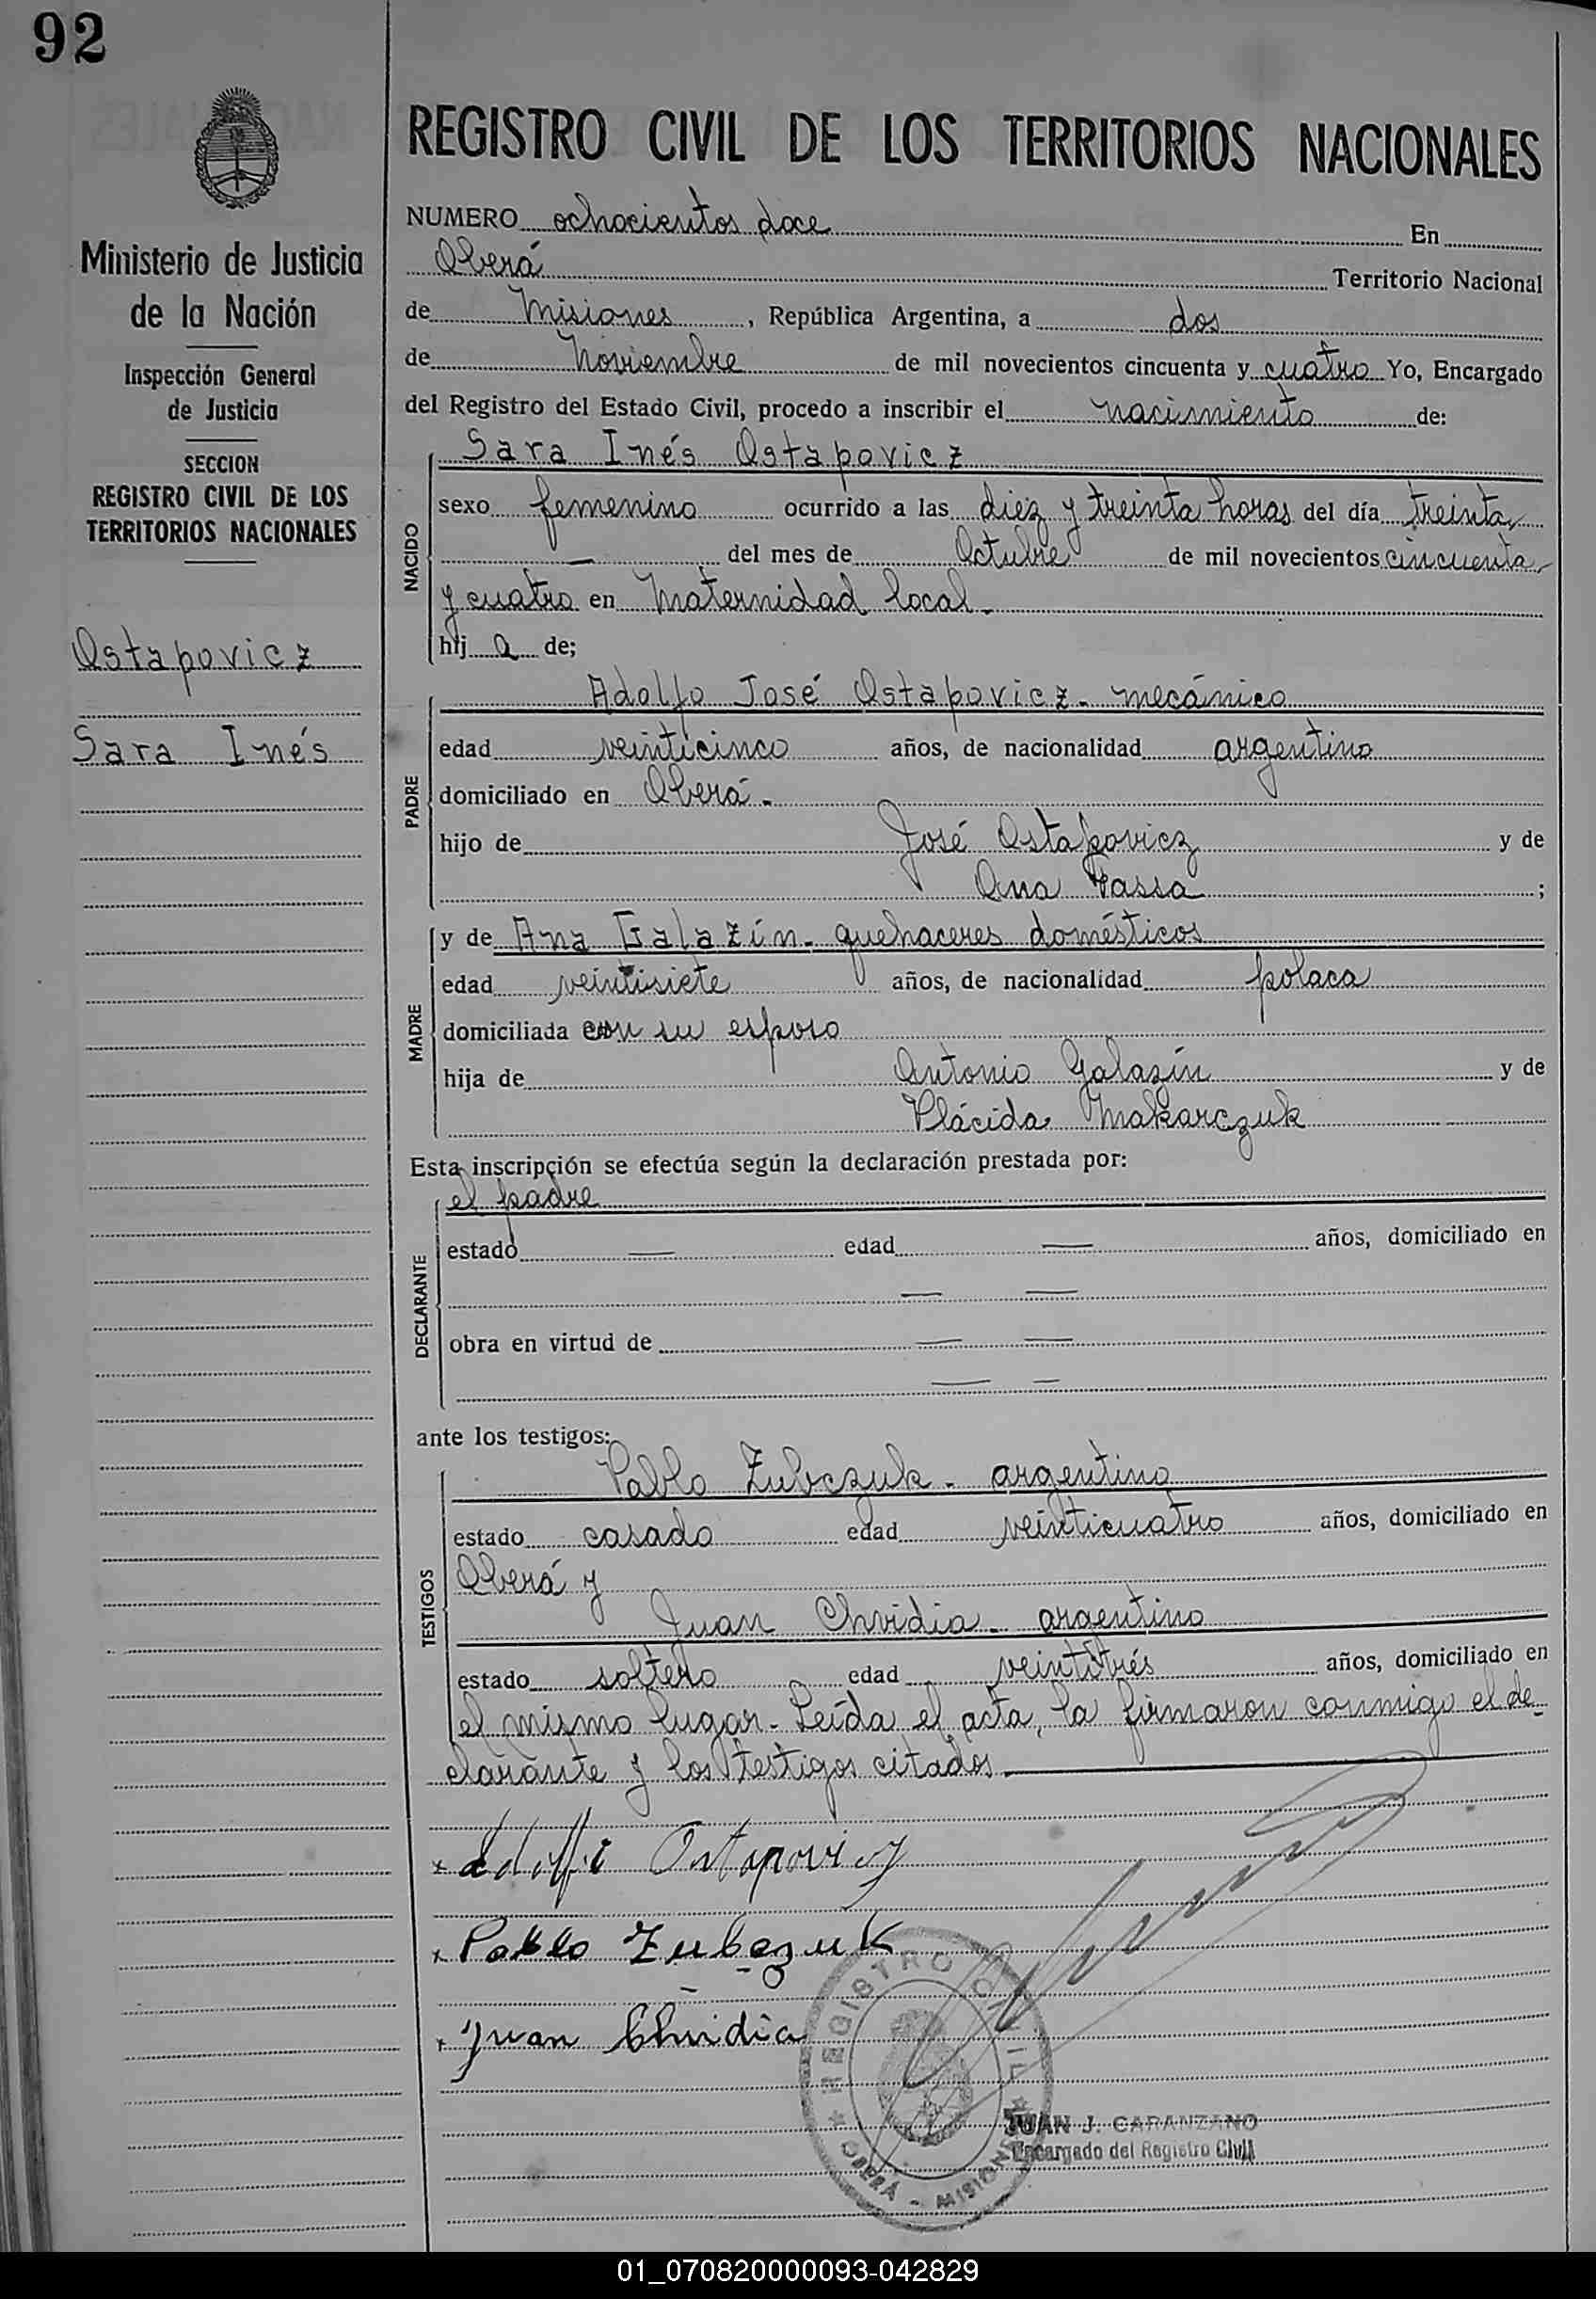 92
REGISTRO CIVIL DE LOS TERRITORIOS NACIONALES
Ministerio de Justicia
de la Nación
Inspección General
de Justicia
SECCION
REGISTRO CIVIL DE LOS
TERRITORIOS NACIONALES
Ostapovicz
Sara Inés
NUMERO ochocientos doce En
Oberá Territorio Nacional
de Misiones, República Argentina, a dos
de Noviembre de mil novecientos cincuenta y cuatro Yo, Encargado
del Registro del Estado Civil, procedo a inscribir el nacimiento de:
NACIDO
Sara Inés Ostapovicz
sexo femenino ocurrido a las diez y treinta horas del día treinta
— del mes de Octubre de mil novecientos cincuenta
y cuatro en Maternidad local.
hij a de;
PADRE
Adolfo José Ostapovicz - mecánico
edad veinticinco años, de nacionalidad argentino
domiciliado en Oberá -
hijo de José Ostapovicz y de
Ana ;
MADRE
y de Ana Galazín - quehaceres domésticos
edad veintisiete años, de nacionalidad polaca
domiciliada con su esposo
hija de Antonio Galazín y de
Plácida Makarczuk
Esta inscripción se efectúa según la declaración prestada por:
DECLARANTE
el padre
estado — edad — años, domiciliado en
— —
obra en virtud de — —
— —
ante los testigos:
TESTIGOS
Pablo Zubczuk - argentino
estado casado edad veinticuatro años, domiciliado en
Oberá y
Juan Chvidia - argentino
estado soltero edad veintitrés años, domiciliado en
el mismo lugar - Leída el acta, la firmaron conmigo el de-
clarante y los testigos citados
x Adolfo Ostapovicz
x Pablo Zubczuk
x Juan Chvidia
REGISTRO CIVIL
OBERÁ - MISIONES
JUAN J. CARANZANO
Encargado del Registro Civil
01_070820000093-042829